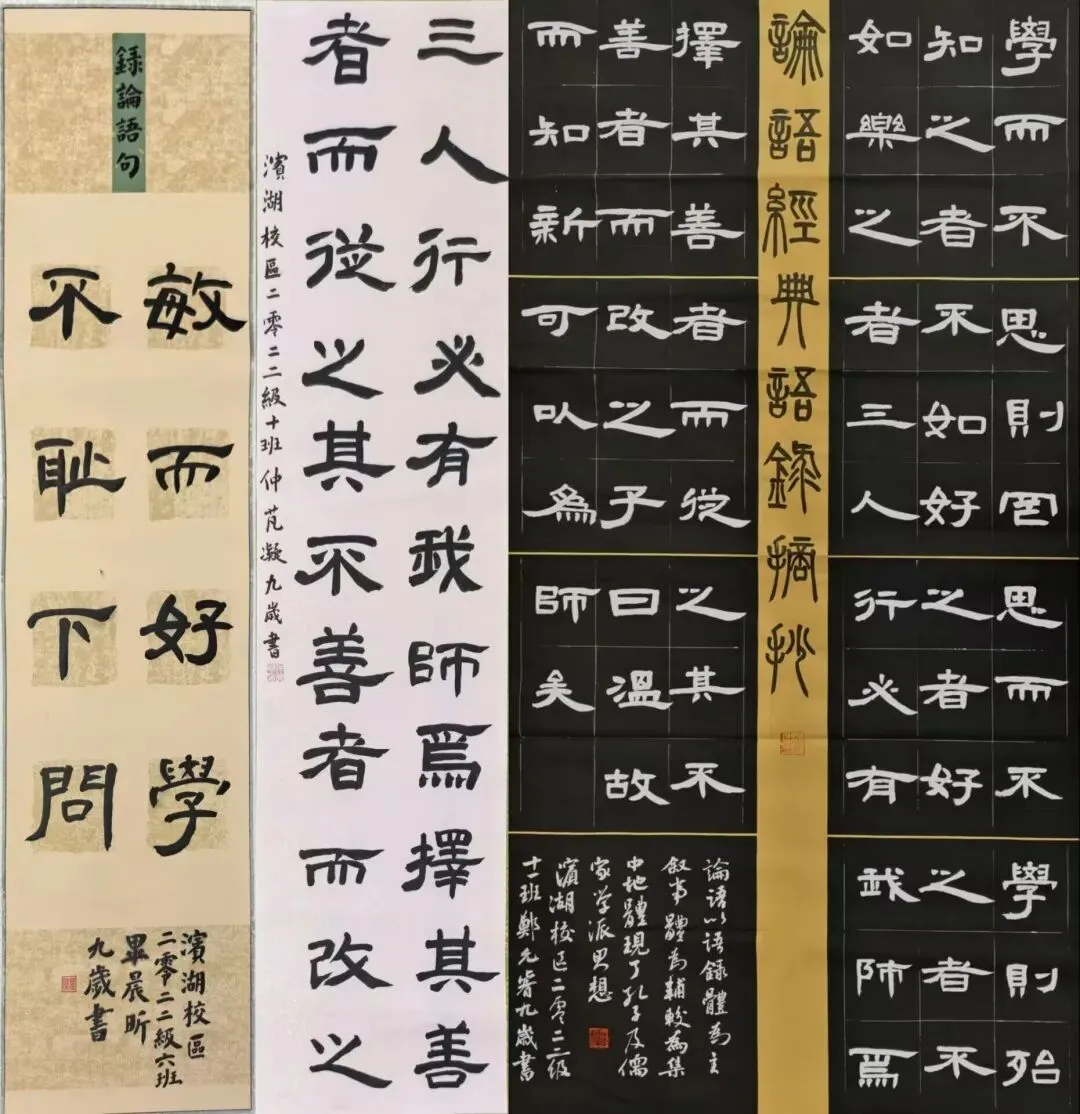 錄論語句
敏而好學
不耻下問
濱湖校區
二零二二級六班
畢晨昕
九歲書
三人行必有我師焉擇其善
者而從之其不善者而改之
濱湖校區二零二二級十班仲芃凝九歲書
學而不思則罔思而不學則殆
知之者不如好之者好之者不
如樂之者三人行必有我師焉
論語經典語錄摘抄
擇其善者而從之其不
善者而改之子曰溫故
而知新可以為師矣
論語以語錄體為主
敘事體為輔較為集
中地體現了孔子及儒
家学派思想
濱湖校区二零二二級
十一班鄭允睿九歲書